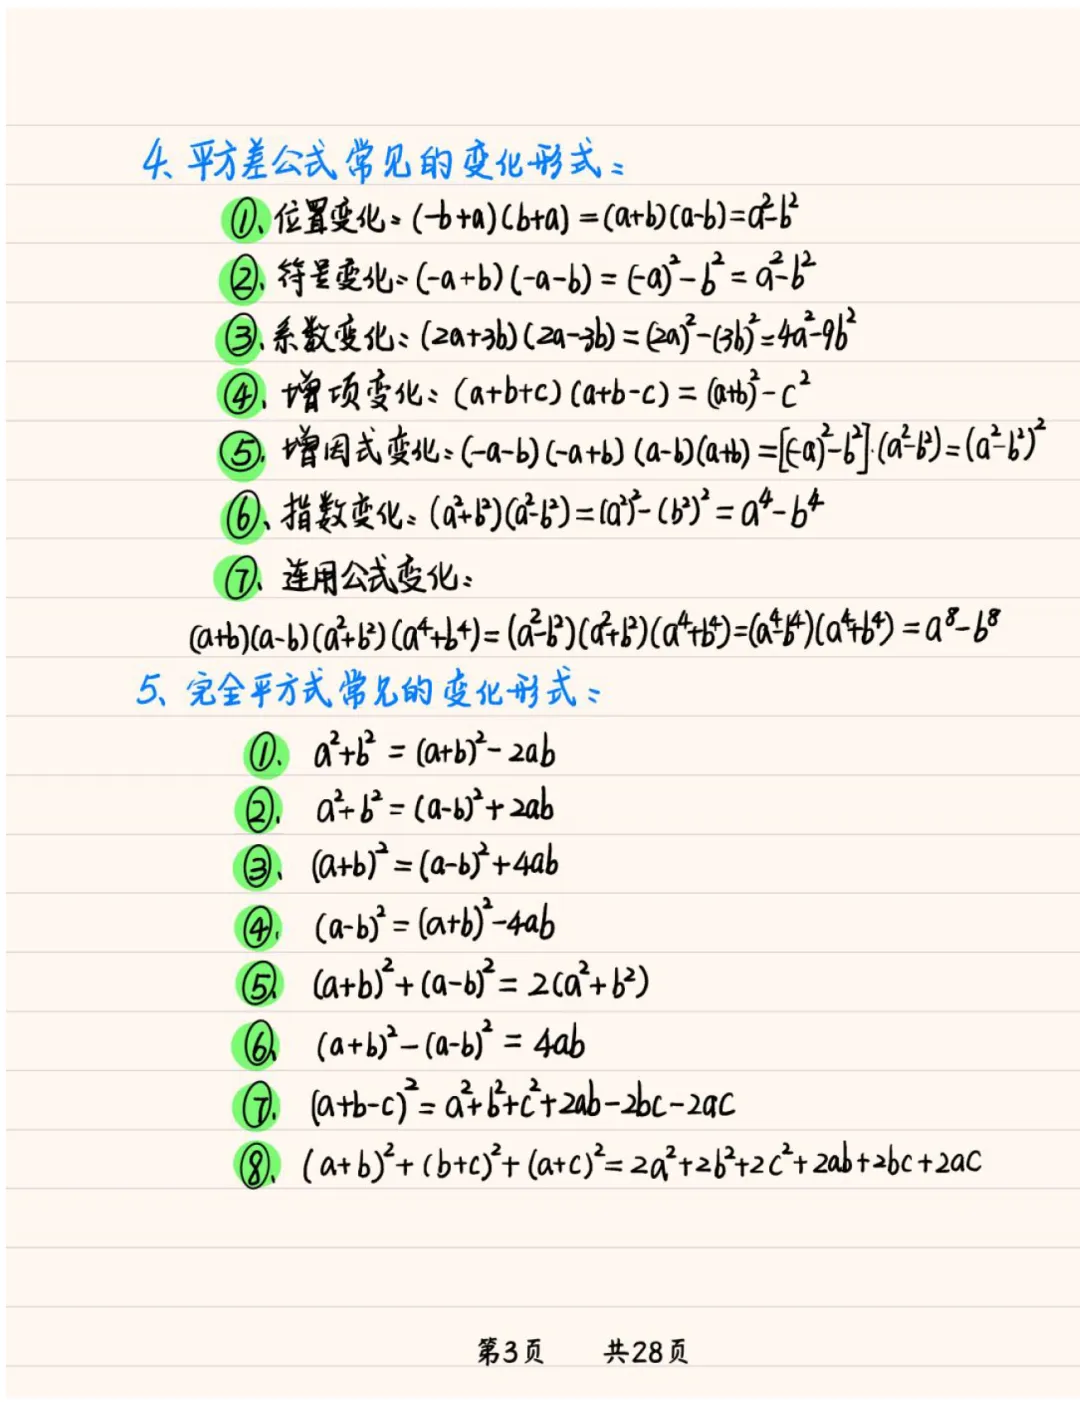 4、平方差公式常见的变化形式：
①、位置变化：(-b+a)(b+a)=(a+b)(a-b)=a²-b²
②、符号变化：(-a+b)(-a-b)=(-a)²-b²=a²-b²
③、系数变化：(2a+3b)(2a-3b)=(2a)²-(3b)²=4a²-9b²
④、增项变化：(a+b+c)(a+b-c)=(a+b)²-c²
⑤、增因式变化：(-a-b)(-a+b)(a-b)(a+b)=[(-a)²-b²]·(a²-b²)=(a²-b²)²
⑥、指数变化：(a²+b²)(a²-b²)=(a²)²-(b²)²=a⁴-b⁴
⑦、连用公式变化：
(a+b)(a-b)(a²+b²)(a⁴+b⁴)=(a²-b²)(a²+b²)(a⁴+b⁴)=(a⁴-b⁴)(a⁴+b⁴)=a⁸-b⁸
5、完全平方式常见的变化形式：
①、a²+b²=(a+b)²-2ab
②、a²+b²=(a-b)²+2ab
③、(a+b)²=(a-b)²+4ab
④、(a-b)²=(a+b)²-4ab
⑤、(a+b)²+(a-b)²=2(a²+b²)
⑥、(a+b)²-(a-b)²=4ab
⑦、(a+b-c)²=a²+b²+c²+2ab-2bc-2ac
⑧、(a+b)²+(b+c)²+(a+c)²=2a²+2b²+2c²+2ab+2bc+2ac
第3页 共28页